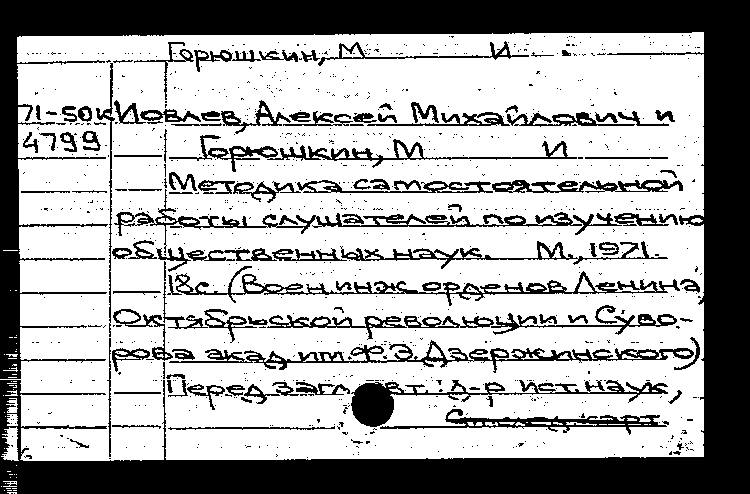 Горюшкин, М И
71-50к Иовлев, Алексей Михайлович и
4799 Горюшкин, М И
Методика самостоятельной
работы слушателей по изучению
общественных наук. М., 1971.
18с. (Воен. инж. орденов Ленина,
Октябрьской революции и Суво-
рова акад. им. Ф.Э. Дзержинского)
Перед загл. авт.: д-р ист. наук,
См. след. карт.